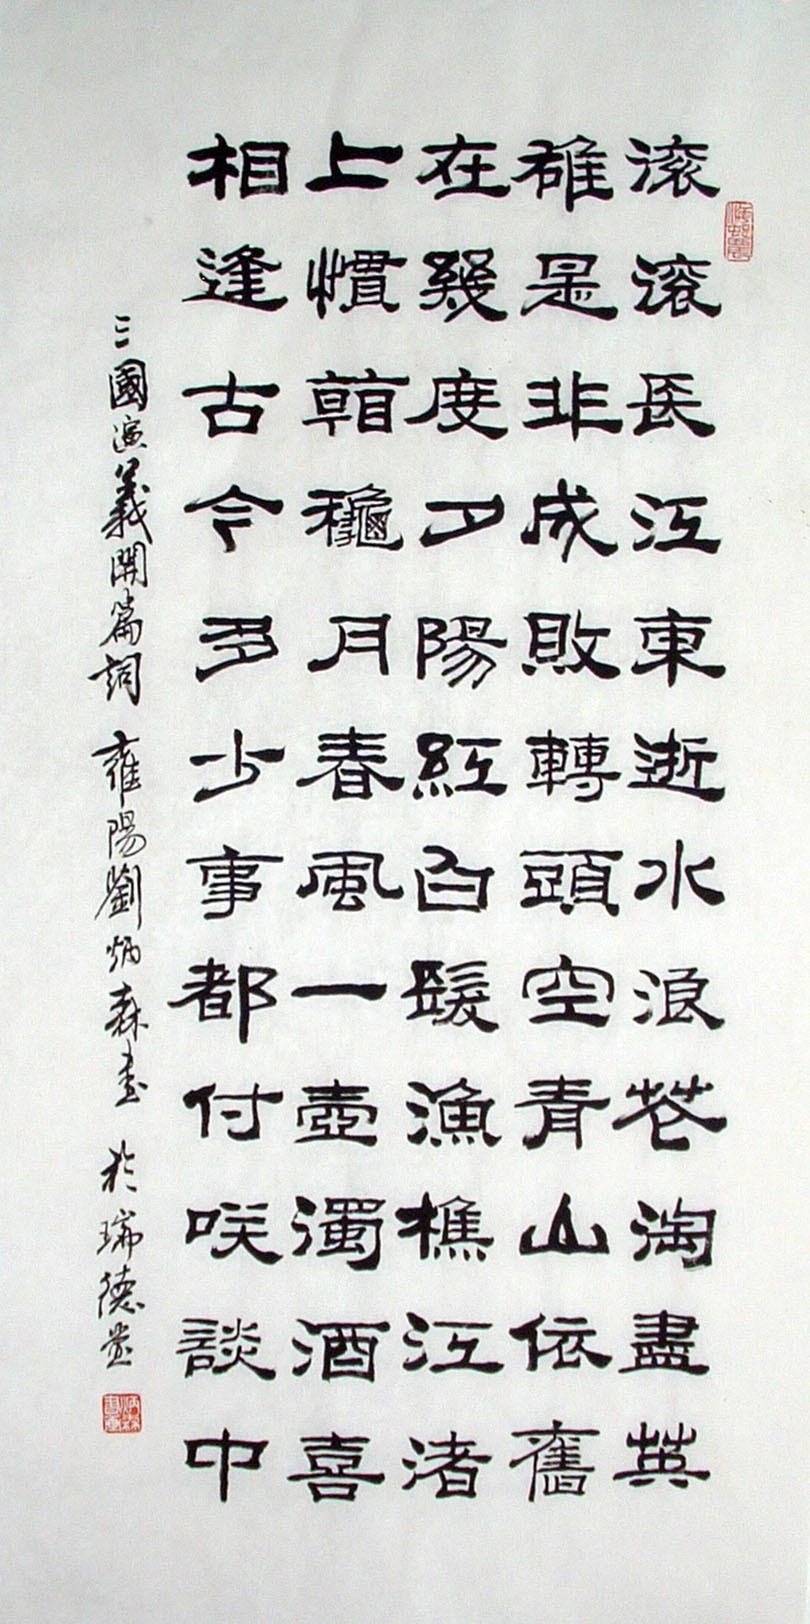 滚滚長江東逝水浪花淘盡英
雄是非成敗轉頭空青山依舊
在幾度夕陽紅白髮漁樵江渚
上慣看龝月春風一壺濁酒喜
相逢古今多少事都付咲談中
三國演義開篇詞 雍陽劉炳森書 於瑞德堂